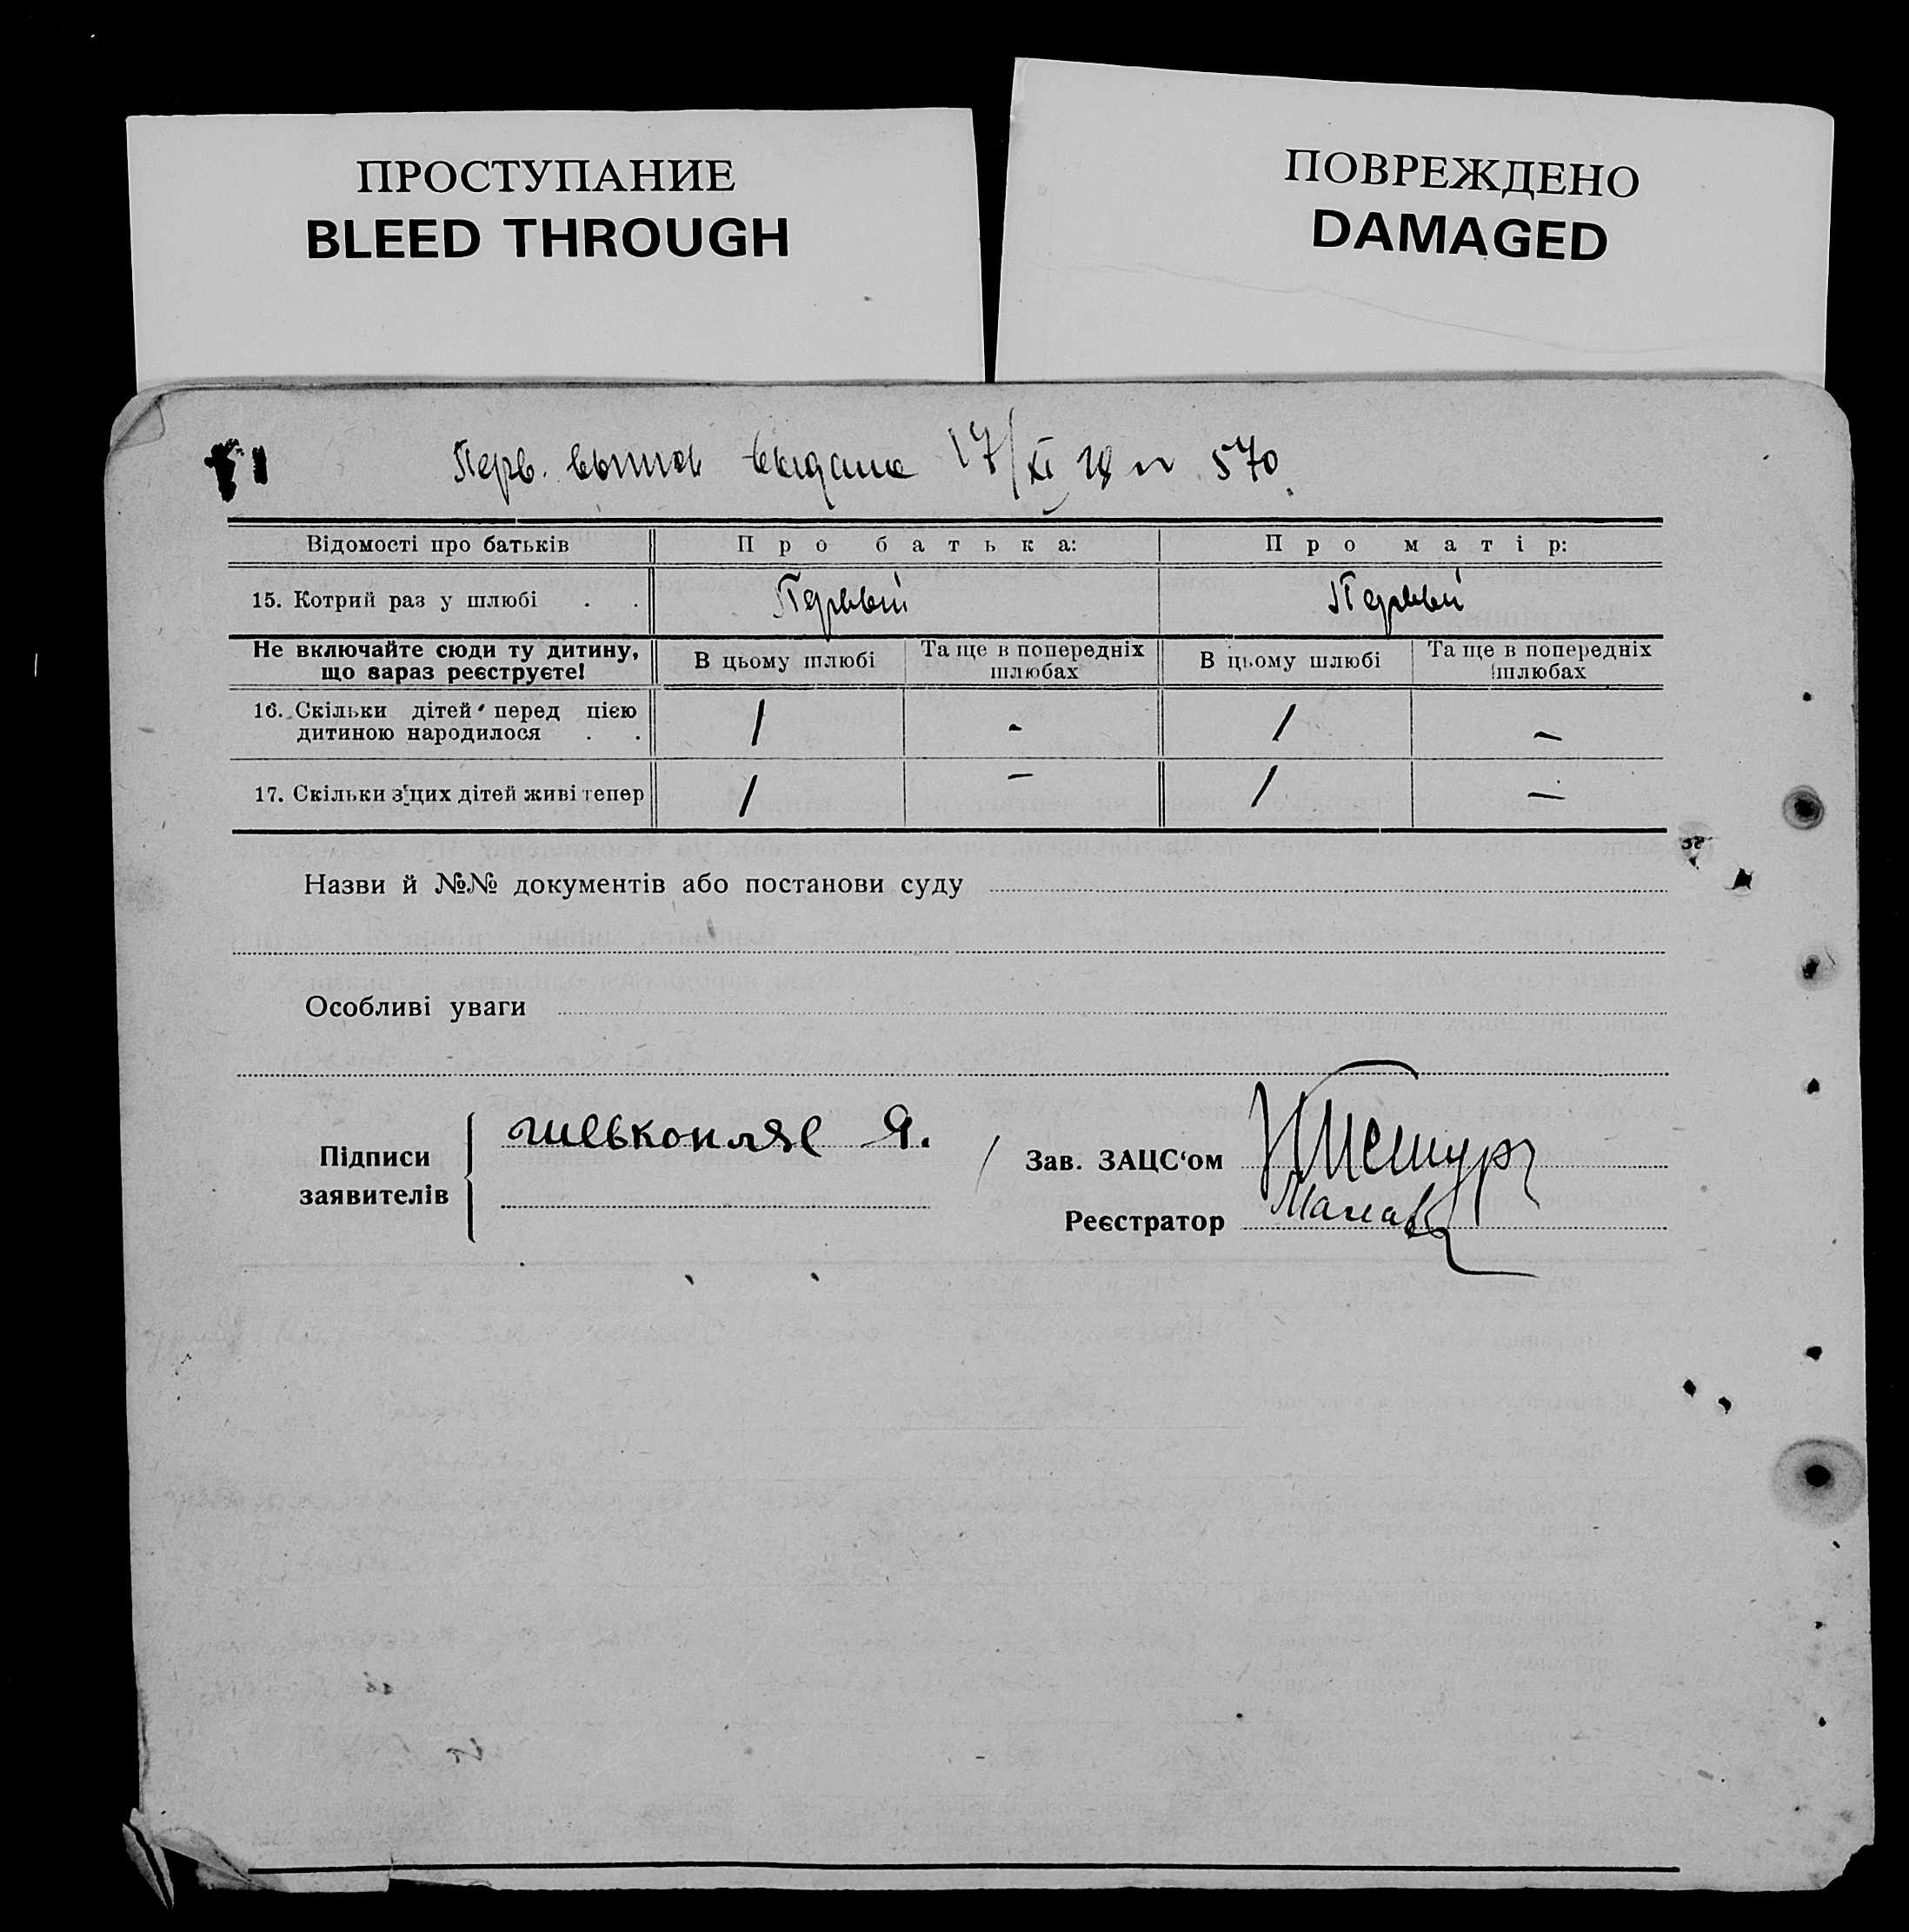 ПРОСТУПАНИЕ
BLEED THROUGH
ПОВРЕЖДЕНО
DAMAGED
Перв. выпись выдана 17/XI 29 № 570
Відомості про батьків Про батька: Про матір:
15. Котрий раз у шлюбі . . Первый Первый
Не включайте сюди ту дитину, що зараз реєструєте! В цьому шлюбі Та ще в попередніх шлюбах В цьому шлюбі Та ще в попередніх шлюбах
16. Скільки дітей перед цією
дитиною народилося . . / - / -
17. Скільки з цих дітей живі тепер / - / -
Назви й №№ документів або постанови суду
Особливі уваги
Підписи
заявителів
Я.
Зав. ЗАЦС‘ом
Реєстратор